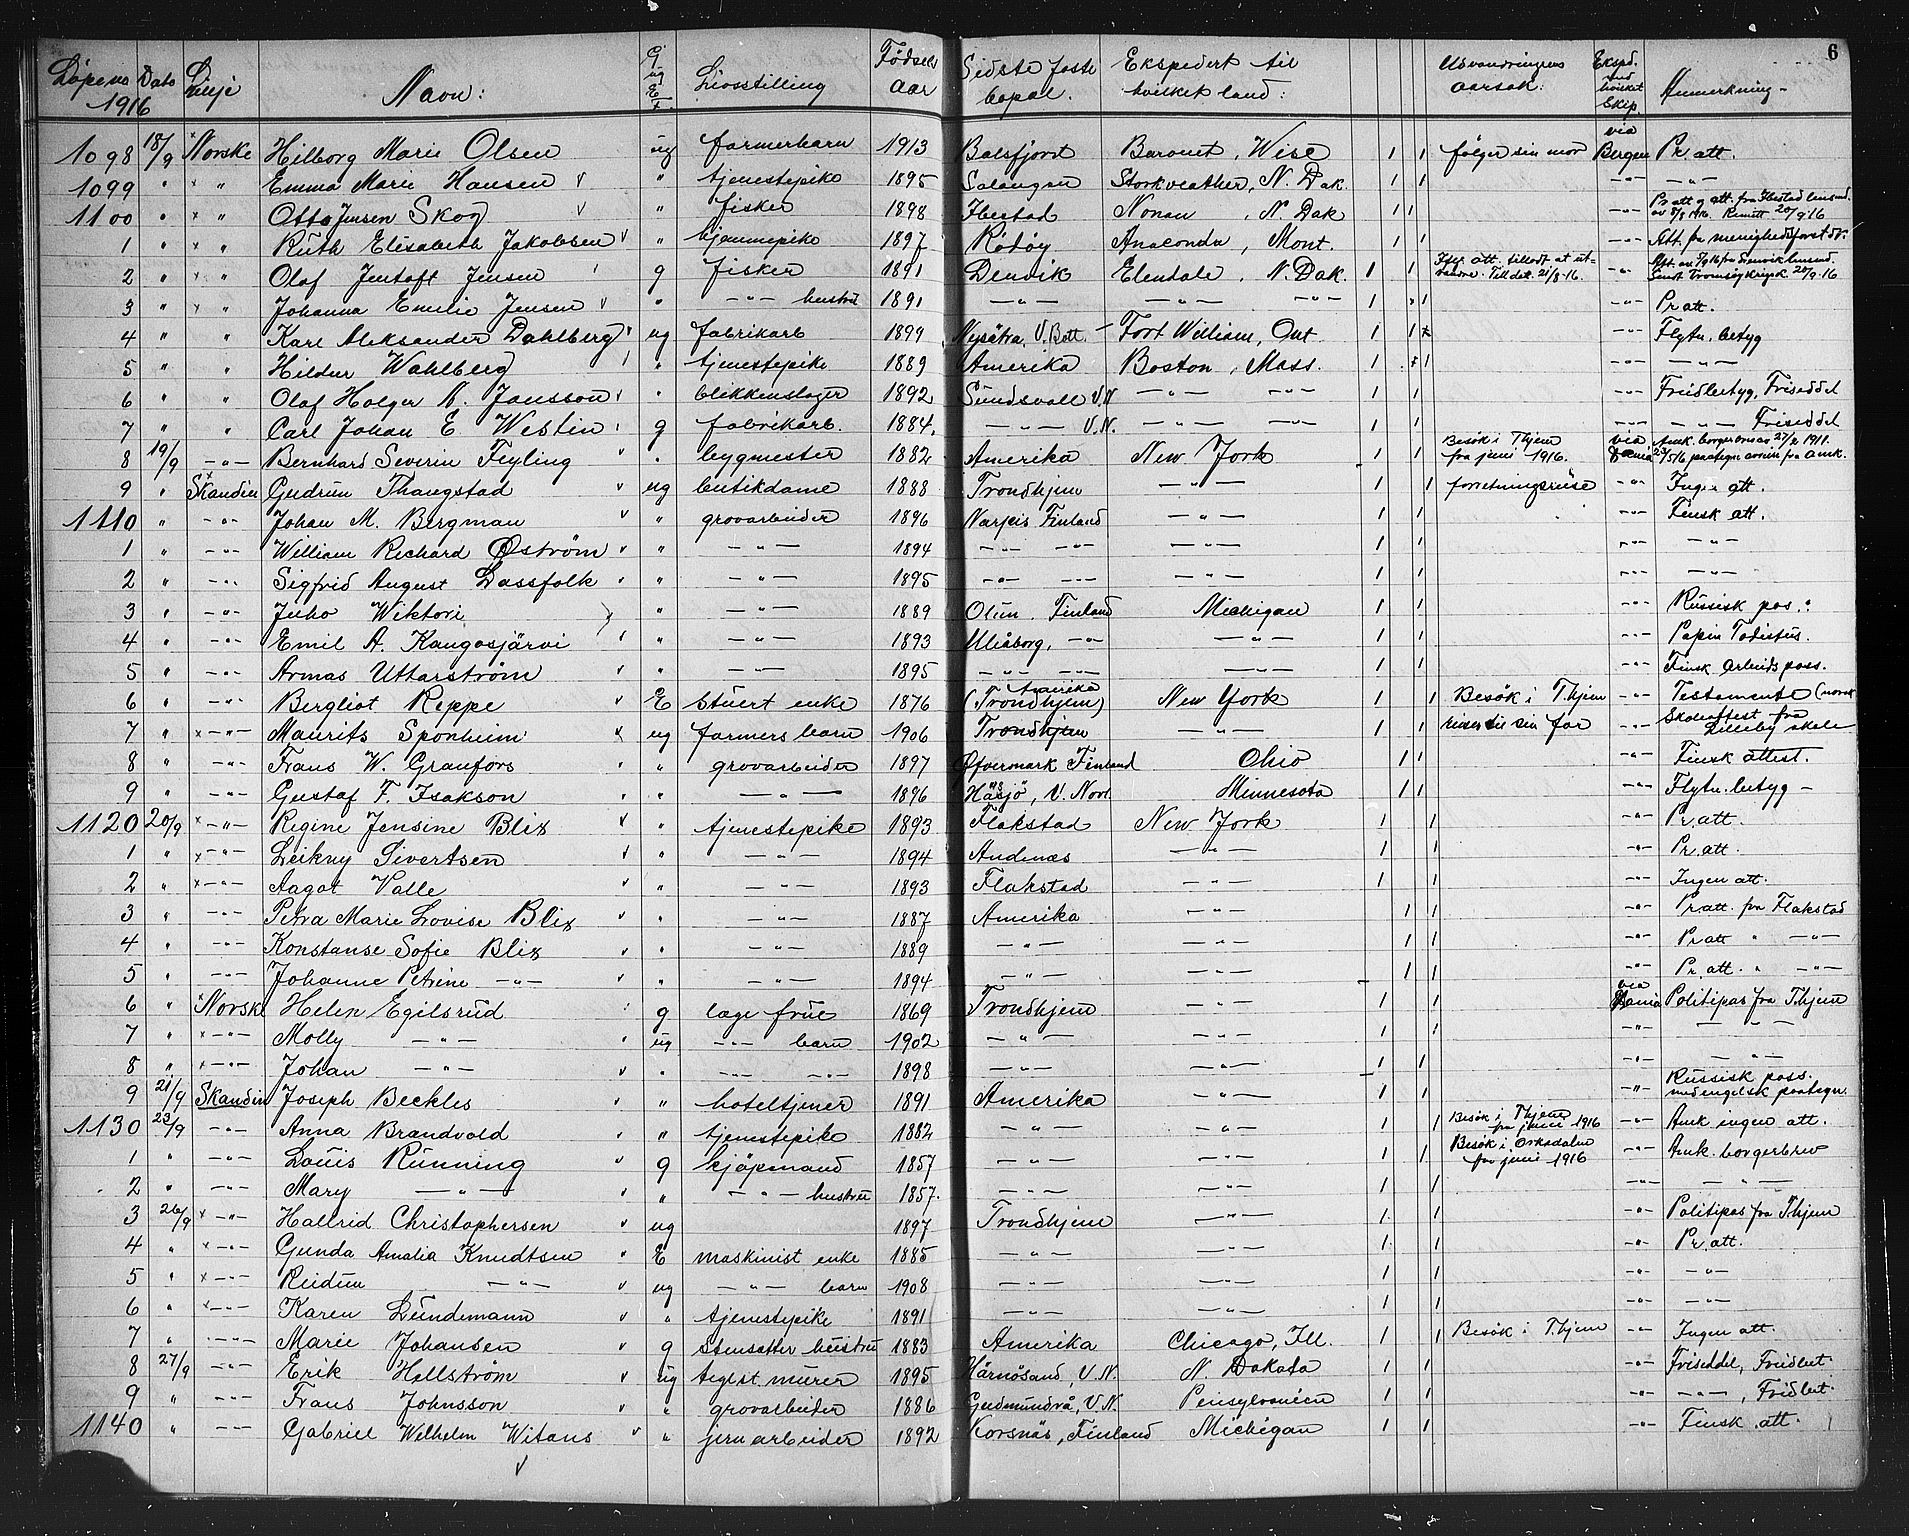 6
Löpeno Dato Linje Navn: G ug E Livsstilling Födsels Sidste faste Ekspedert til Utvandringens Eksped. Anmerkning
1916 aar bopæl. hvilket land: aarsak: Skip
via
1098 18/9 Norske Hilborg Marie Olsen ug farmerbarn 1913 Balsfjord Baronet, Wisc 1 1 følger sin mor Bergen Pr att.
1099 " " Emma Marie Hansen " tjenestepike 1895 Salangen Starkweather, N. Dak. 1 1 -"- -"-
1100 " " Otto Jensen Skog " fisker 1898 Ibestad Nonan, N. Dak 1 1 -"- Pr att og att. fra Ibestad lensmd.
1 " " Ruth Elisabeth Jakobsen " hjemmepike 1897 Rödöy Anaconda, Mont. 1 1 -"- Att. fra menighedsforstdr.
2 " " Olaf Jentoft Jensen g fisker 1891 Dervik Elendale, N. Dak. 1 1 att. tilladt at utvandre. Till dat. 21/8-16. -"- 20/9-16
3 " " Johanna Emilie Jensen " -"- hustru 1891 -"- -"- -"- 1 1 -"- Pr att.
4 " " Karl Aleksander Dahlberg ug fabrikarb 1899 Nysätra, V. Bott. Fort William, Ont 1 1 -"- Flytn. betyg
5 " " Hildur Wahlberg " tjenestepike 1889 Amerika Boston, Mass. 1 1 -"- -"-
6 " " Olaf Holger A. Jansson " blikkenslager 1892 Sundsvall V.N -"- -"- 1 1 -"- Fridbetyg, Friseddel
7 " " Carl Johan E Westin g fabrikarb. 1884. -"- V.N. -"- -"- 1 1 -"- -"- Friseddel
8 19/9 -"- Bernhard Severin Feyling " bygmester 1882 Amerika New York 1 1 Besök i Thjem fra juni 1916. via Dania Amk. borgerbrev av 27/2 1911. 23/5 16 paategn fra amk.
9 " Skandin Gudrun Thangstad ug butikdame 1888 Trondhjem -"- 1 1 forretningsreise -"- Ingen att.
1110 " -"- Johan M. Bergman " grovarbeider 1896 Narpeis Finland -"- 1 1 -"- Finsk att.
1 " -"- William Richard Öström " -"- 1894 -"- -"- -"- 1 1 -"- -"-
2 " -"- Sigfrid August Lassfolk " -"- 1895 -"- -"- -"- 1 1 -"- -"-
3 " -"- Juho Wiktori " -"- 1889 Olün. Finland Michigan 1 1 -"- Russisk pas.
4 " -"- Emil A. Kangosjärvi " -"- 1893 Uleåborg, -"- -"- 1 1 -"- Papin Todistus.
5 " -"- Armas Uttarström " -"- 1895 -"- -"- -"- 1 1 -"- Finsk Arbeids pass.
6 " -"- Bergliot Reppe E Stuert enke 1876 Amerika (Trondhjem) New York 1 1 Besök i T.hjem -"- Testamente (norsk
7 " -"- Maurits Sponheim ug farmers barn 1906 Trondhjem -"- 1 1 reiser til sin far -"- Skoleattest fra Lilleby skole
8 " -"- Frans W. Granfors " grovarbeider 1897 Øfvermark Finland Ohio 1 1 -"- Finsk attest.
9 " -"- Gustaf F. Isakson " -"- 1896 Häsjö, V. Norl. Minnesota 1 1 -"- Flytn. betyg -
1120 20/9 -"- Regine Jensine Blix " tjenestepike 1893 Flakstad New York 1 1 -"- Pr. att.
1 " -"- Leikny Sivertsen " -"- 1894 Andenæs -"- 1 1 -"- Pr. att.
2 " -"- Aagot Valle " -"- 1893 Flakstad -"- 1 1 -"- Ingen att.
3 " -"- Petra Marie Lovise Blix " -"- 1887 Amerika -"- 1 1 -"- Pr att. fra Flakstad
4 " -"- Konstanse Sofie Blix " -"- 1889 -"- -"- 1 1 -"- Pr att " -"-
5 " -"- Johanne Petrine -"- " -"- 1894 -"- -"- 1 1 -"- Pr. att. " -"-
6 " Norske Helen Egilsrud g læge frue 1869 Trondhjem -"- 1 1 via Dania Politipas fra T.hjem
7 " -"- Molly -"- ug -"- barn 1902 -"- -"- 1 1 -"- -"-
8 " -"- Johan -"- " -"- -"- 1898 -"- -"- 1 1 -"- -"-
9 21/9 Skandin Joseph Beckles " hoteltjener 1891 Amerika -"- 1 1 -"- Russisk pass. med engelsk paategn.
1130 23/9 -"- Anna Brandvold " tjenestepike 1882 -"- -"- 1 1 Besök i Thjem fra juni 1916 -"- Amk ingen att.
1 " -"- Louis Running g kjöpmand 1857 -"- -"- 1 1 Besök i Orkedalen fra juni 1916 -"- Amk. borgerbrev
2 " -"- Mary -"- " -"- hustru 1857. -"- -"- 1 1 -"- -"-
3 26/9 -"- Hallrid Christophersen ug 1897 Trondhjem -"- 1 1 -"- Politipas fra Thjem
4 " -"- Gunda Amalia Knudtsen E maskinist enke 1885 -"- -"- 1 1 -"- Pr. att.
5 " -"- Reidun -"- ug -"- barn 1908 -"- -"- 1 1 -"- -"-
6 " -"- Karen Lundemann " tjenestepike 1891 -"- -"- 1 1 -"- -"-
7 " -"- Marie Johansen g stensætter hustru 1883 Amerika Chicago, Ill. 1 1 Besök i T.hjem -"- Ingen att.
8 27/9 -"- Erik Hellström ug teglst. murer 1895 Härnösand, V.N. N. Dakota 1 1 -"- Friseddel, Fridbet.
9 " -"- Frans Johnsson " grovarbeider 1886 Gudmundrå, V.N. Pensylvanien 1 1 -"- -"-, Fridbet.
1140 " -"- Gabriel Welhelm Witans " jernarbeider 1892 Korsnäs, Finland Michigan 1 1 -"- Finsk att.